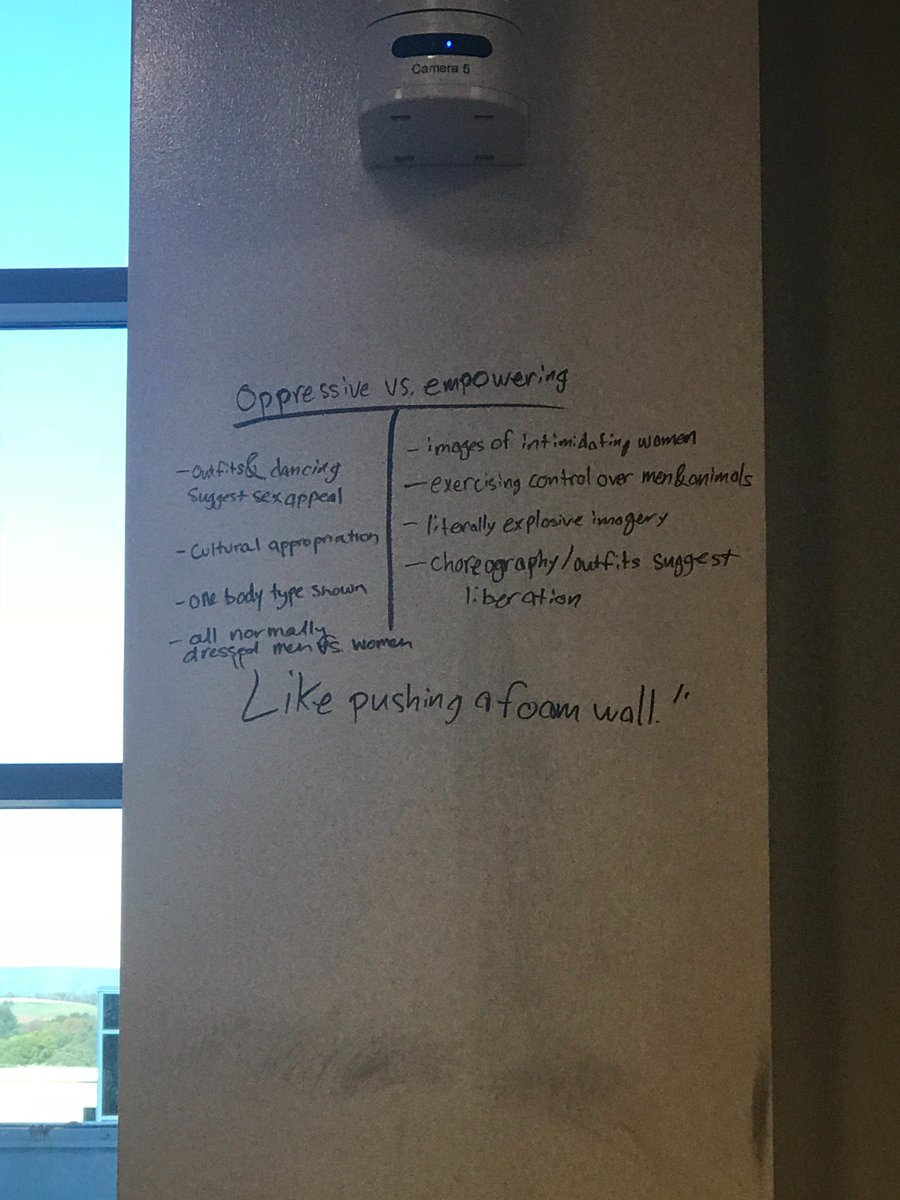 Camera 5
Oppressive vs. empowering
- outfits & dancing
suggest sex appeal
- Cultural appropriation
- one body type shown
- all normally
dressed men vs. women
- images of intimidating women
- exercising control over men & animals
- literally explosive imagery
- choreography/outfits suggest
liberation
Like pushing a foam wall."